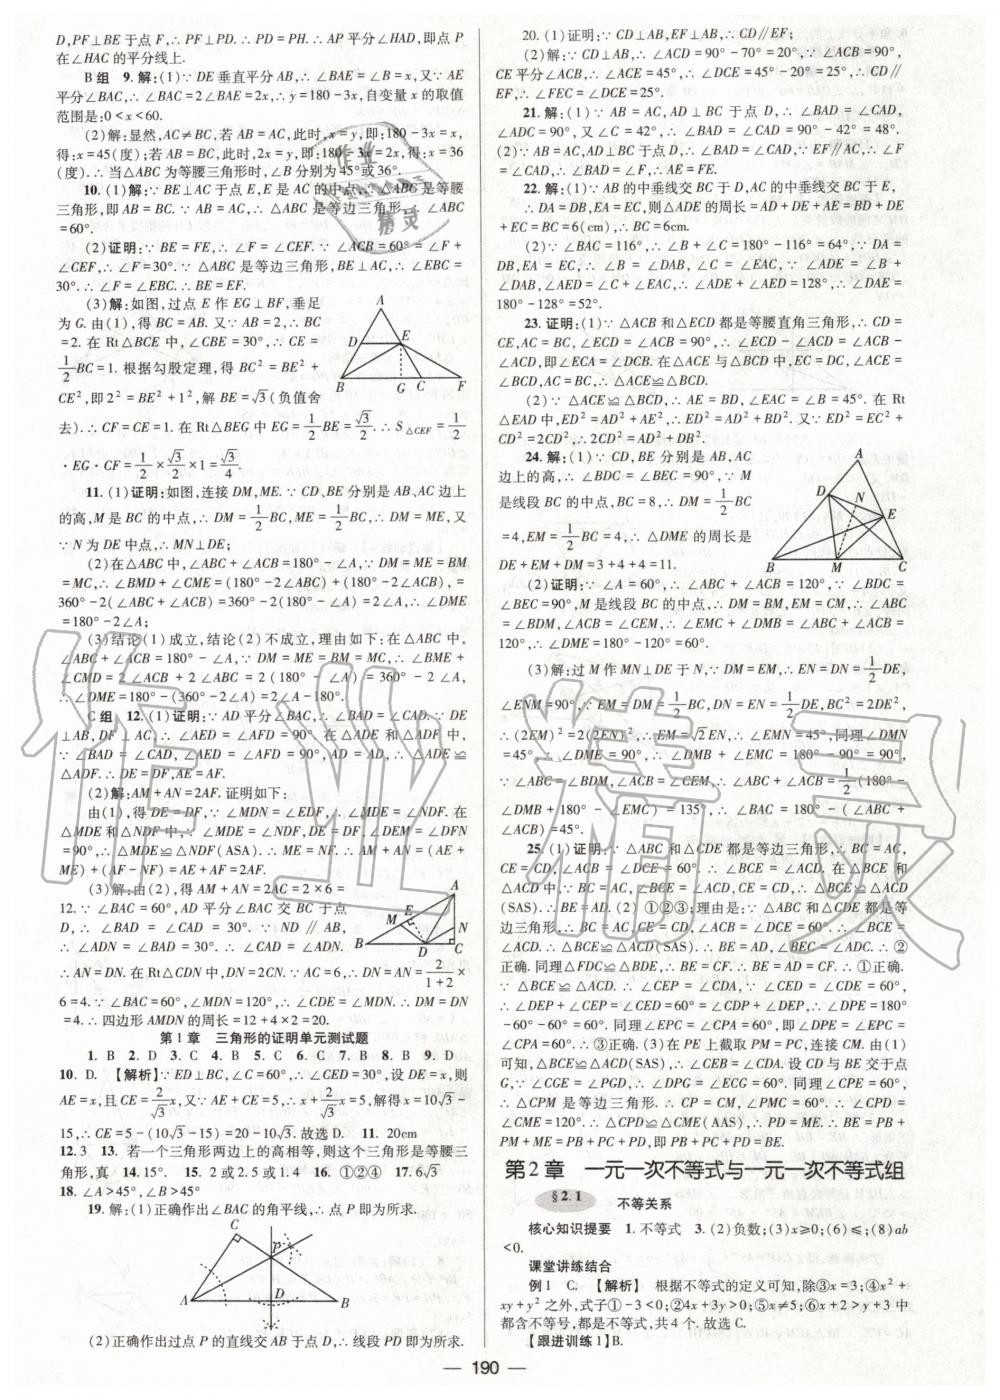 D,PF⊥BE于点F,∴PF=PD.∴PD=PH.∴AP平分∠HAD,即点P
在∠HAC的平分线上.
B组 9.解:(1)∵DE垂直平分AB,∴∠BAE=∠B=x,又∵AE
平分∠BAC,∴∠BAC=2∠BAE=2x,∴y=180-3x,自变量x的取值
范围是:0<x<60.
(2)解:显然,AC≠BC,若AB=AC,此时,x=y,即:180-3x=x,
得:x=45(度);若AB=BC,此时,2x=y,即:180-3x=2x,得:x=36
(度).∴当△ABC为等腰三角形时,∠B分别为45°或36°.
10.(1)解:∵BE⊥AC于点E,E是AC的中点,∴△ABC是等腰
三角形,即AB=BC.∵AB=AC,∴△ABC是等边三角形,∴∠ABC
=60°.
(2)证明:∵BE=FE,∴∠F=∠CEF.∵∠ACB=60°=∠F+
∠CEF,∴∠F=30°.∵△ABC是等边三角形,BE⊥AC,∴∠EBC=
30°.∴∠F=∠EBC.∴BE=EF.
(3)解:如图,过点E作EG⊥BF,垂足
为G.由(1),得BC=AB.又∵AB=2,∴BC
=2.在Rt△BCE中,∠CBE=30°,∴CE=
1/2BC=1.根据勾股定理,得BC²=BE²+
CE²,即2²=BE²+1²,解BE=√3(负值舍
去).∴CF=CE=1.在Rt△BEG中EG=1/2BE=√3/2.∴S△CEF=1/2
·EG·CF=1/2×√3/2×1=√3/4.
11.(1)证明:如图,连接DM,ME.∵CD、BE分别是AB、AC边上
的高,M是BC的中点,∴DM=1/2BC,ME=1/2BC,∴DM=ME,又
∵N为DE中点,∴MN⊥DE;
(2)在△ABC中,∠ABC+∠ACB=180°-∠A,∵DM=ME=BM
=MC,∴∠BMD+∠CME=(180°-2∠ABC)+(180°-2∠ACB),=
360°-2(∠ABC+∠ACB)=360°-2(180°-∠A)=2∠A,∴∠DME
=180°-2∠A;
(3)结论(1)成立,结论(2)不成立,理由如下:在△ABC中,
∠ABC+∠ACB=180°-∠A,∵DM=ME=BM=MC,∴∠BME+
∠CMD=2∠ACB+2∠ABC=2(180°-∠A)=360°-2∠A
∴∠DME=180°-(360°-2∠A)=2∠A-180°.
C组 12.(1)证明:∵AD平分∠BAC,∴∠BAD=∠CAD.∵DE
⊥AB,DF⊥AC,∴∠AED=∠AFD=90°.在△ADE和△ADF中,
∵∠BAD=∠CAD,∠AED=∠AFD=90°,AD=AD,∴△ADE≌
△ADF.∴DE=DF,AE=AF.
(2)解:AM+AN=2AF.证明如下:
由(1),得DE=DF,∵∠MDN=∠EDF,∴∠MDE=∠NDF.在
△MDE和△NDF中,∵∠MDE=∠NDF,DE=DF,∠DEM=∠DFN
=90°,∴△MDE≌△NDF(ASA).∴ME=NF.∴AM+AN=(AE+
ME)+(AF-NF)=AE+AF=2AF.
(3)解:由(2),得AM+AN=2AC=2×6=
12.∵∠BAC=60°,AD平分∠BAC交BC于点
D,∴∠BAD=∠CAD=30°.∵ND∥AB,
∴∠ADN=∠BAD=30°.∴∠CAD=∠ADN.
∴AN=DN.在Rt△CDN中,DN=2CN.∵AC=6,∴DN=AN=2/(1+2)×
6=4.∵∠BAC=60°,∠MDN=120°,∴∠CDE=∠MDN.∴DM=DN
=4.∴四边形AMDN的周长=12+4×2=20.
第1章 三角形的证明单元测试题
1.B 2.D 3.A 4.C 5.C 6.C 7.B 8.B 9.D
10.D.【解析】∵ED⊥BC,∠C=60°,∴∠CED=30°,设DE=x,则
AE=x,且CE=2/√3x,又∵AE+CE=5,∴x+2/√3x=5,解得x=10√3-
15,∴CE=5-(10√3-15)=20-10√3.故选D. 11.20cm
12.3 13.若一个三角形两边上的高相等,则这个三角形是等腰三
角形,真 14.15° 15.2或2.5或1 16.①②④ 17.6√3
18.∠A>45°,∠B>45°
19.解:(1)正确作出∠BAC的角平线,∴点P即为所求.
(2)正确作出过点P的直线交AB于点D,∴线段PD即为所求.
20.(1)证明:∵CD⊥AB,EF⊥AB,∴CD∥EF;
(2)解:∵CD⊥AB,∴∠ACD=90°-70°=20°,∵∠ACB=90°,
CE平分∠ACB,∴∠ACE=45°,∴∠DCE=45°-20°=25°,∴CD∥
EF,∴∠FEC=∠DCE=25°.
21.解:(1)∵AB=AC,AD⊥BC于点D,∴∠BAD=∠CAD,
∠ADC=90°,又∠C=42°,∴∠BAD=∠CAD=90°-42°=48°.
(2)∵AB=AC,AD⊥BC于点D,∴∠BAD=∠CAD,∵EF∥AC,∴∠F
=∠CAD,∴∠BAD=∠F,∴AE=FE.
22.解:(1)∵AB的中垂线交BC于D,AC的中垂线交BC于E,
∴DA=DB,EA=EC,则△ADE的周长=AD+DE+AE=BD+DE
+EC=BC=6(cm),∴BC=6cm.
(2)∵∠BAC=116°,∴∠B+∠C=180°-116°=64°,∵DA=
DB,EA=EC,∴∠B=∠DAB,∠C=∠EAC,∵∠ADE=∠B+
∠DAB,∠AED=∠C+∠EAC,∴∠ADE+∠AED=128°,∴∠DAE=
180°-128°=52°.
23.证明:(1)∵△ACB和△ECD都是等腰直角三角形,∴CD=
CE,AC=BC,∠ECD=∠ACB=90°,∴∠ECD-∠ACD=∠ACB-
∠ACD,即∠ECA=∠DCB.在△ACE与△BCD中,EC=DC,∠ACE=
∠BCD,AC=BC,∴△ACE≌△BCD.
(2)∵△ACE≌△BCD,∴AE=BD,∠EAC=∠B=45°.在Rt
△EAD中,ED²=AD²+AE²,∴ED²=AD²+BD².又∵ED²=EC²+
CD²=2CD²,∴2CD²=AD²+DB².
24.解:(1)∵CD,BE分别是AB,AC
边上的高,∴∠BDC=∠BEC=90°,∵M
是线段BC的中点,BC=8,∴DM=1/2BC
=4,EM=1/2BC=4,∴△DME的周长是
DE+EM+DM=3+4+4=11.
(2)证明:∵∠A=60°,∴∠ABC+∠ACB=120°,∵∠BDC=
∠BEC=90°,M是线段BC的中点,∴DM=BM,EM=CM,∴∠ABC
=∠BDM,∠ACB=∠CEM,∴∠EMC+∠DMB=∠ABC+∠ACB=
120°,∴∠DME=180°-120°=60°.
(3)解:过M作MN⊥DE于N,∵DM=EM,∴EN=DN=1/2DE,
∠ENM=90°,∵EM=DM=1/2BC,DN=EN=1/2DE,BC²=2DE²,
∴(2EM)²=2(2EN)²,∴EM=√2EN,∴∠EMN=45°,同理∠DMN
=45°,∴∠DME=90°,∴∠DMB+∠EMC=180°-90°=90°,
∵∠ABC=∠BDM,∠ACB=∠CEM,∴∠ABC+∠ACB=1/2(180°-
∠DMB+180°-∠EMC)=135°,∴∠BAC=180°-(∠ABC+
∠ACB)=45°.
25.(1)证明:∵△ABC和△CDE都是等边三角形,∴BC=AC,
CE=CD,∠ACB=∠DCE=60°.∴∠BCE=∠ACD.在△BCE和
△ACD中,∵BC=AC,∠BCE=∠ACD,CE=CD,∴△BCE≌△ACD
(SAS).∴BE=AD.(2)①②③;理由是:∵△ABC和△CDE都是等
边三角形,∴BC=AC,CE=CD,∠ACB=∠DCE=60°.∴∠BCE=
∠ACD.∴△BCE≌△ACD(SAS).∴BE=AD,∠BEC=∠ADC.∴②
正确.同理△FDC≌△BDE,∴BE=CF.∴BE=AD=CF.∴①正确.
∵△BCE≌△ACD,∴∠CEP=∠CDA,∵∠CED=∠CDE=60°,
∴∠DEP+∠CEP=∠CED=60°=∠CDP+∠DEP,∴∠DPE=180°
-60°-60°=60°.同理∠EPC=∠CPA=60°,即∠DPE=∠EPC=
∠CPA=60°.∴③正确.(3)在PE上截取PM=PC,连接CM.由(1)
可知,△BCE≌△ACD(SAS),∴∠BEC=∠ADC.设CD与BE交于点
G,∵∠CGE=∠PGD,∴∠DPG=∠ECG=60°.同理∠CPE=60°,
∴△CPM是等边三角形.∴CP=CM,∠PMC=60°.∴∠CPD=
∠CME=120°.∴△CPD≌△CME(AAS),∴PD=ME.∴BE=PB+
PM+ME=PB+PC+PD,即PB+PC+PD=BE.
第2章 一元一次不等式与一元一次不等式组
§2.1
不等关系
核心知识提要 1.不等式 3.(2)负数;(3)x≥0;(6)≤;(8)ab
<0.
课堂讲练结合
例1 C.【解析】 根据不等式的定义可知,除③x=3;④x²+
xy+y²之外,式子①-3<0;②4x+3y>0;⑤x≠5;⑥x+2>y+3中
都含不等号,都是不等式,共4个.故选C.
【跟进训练1】B.
190